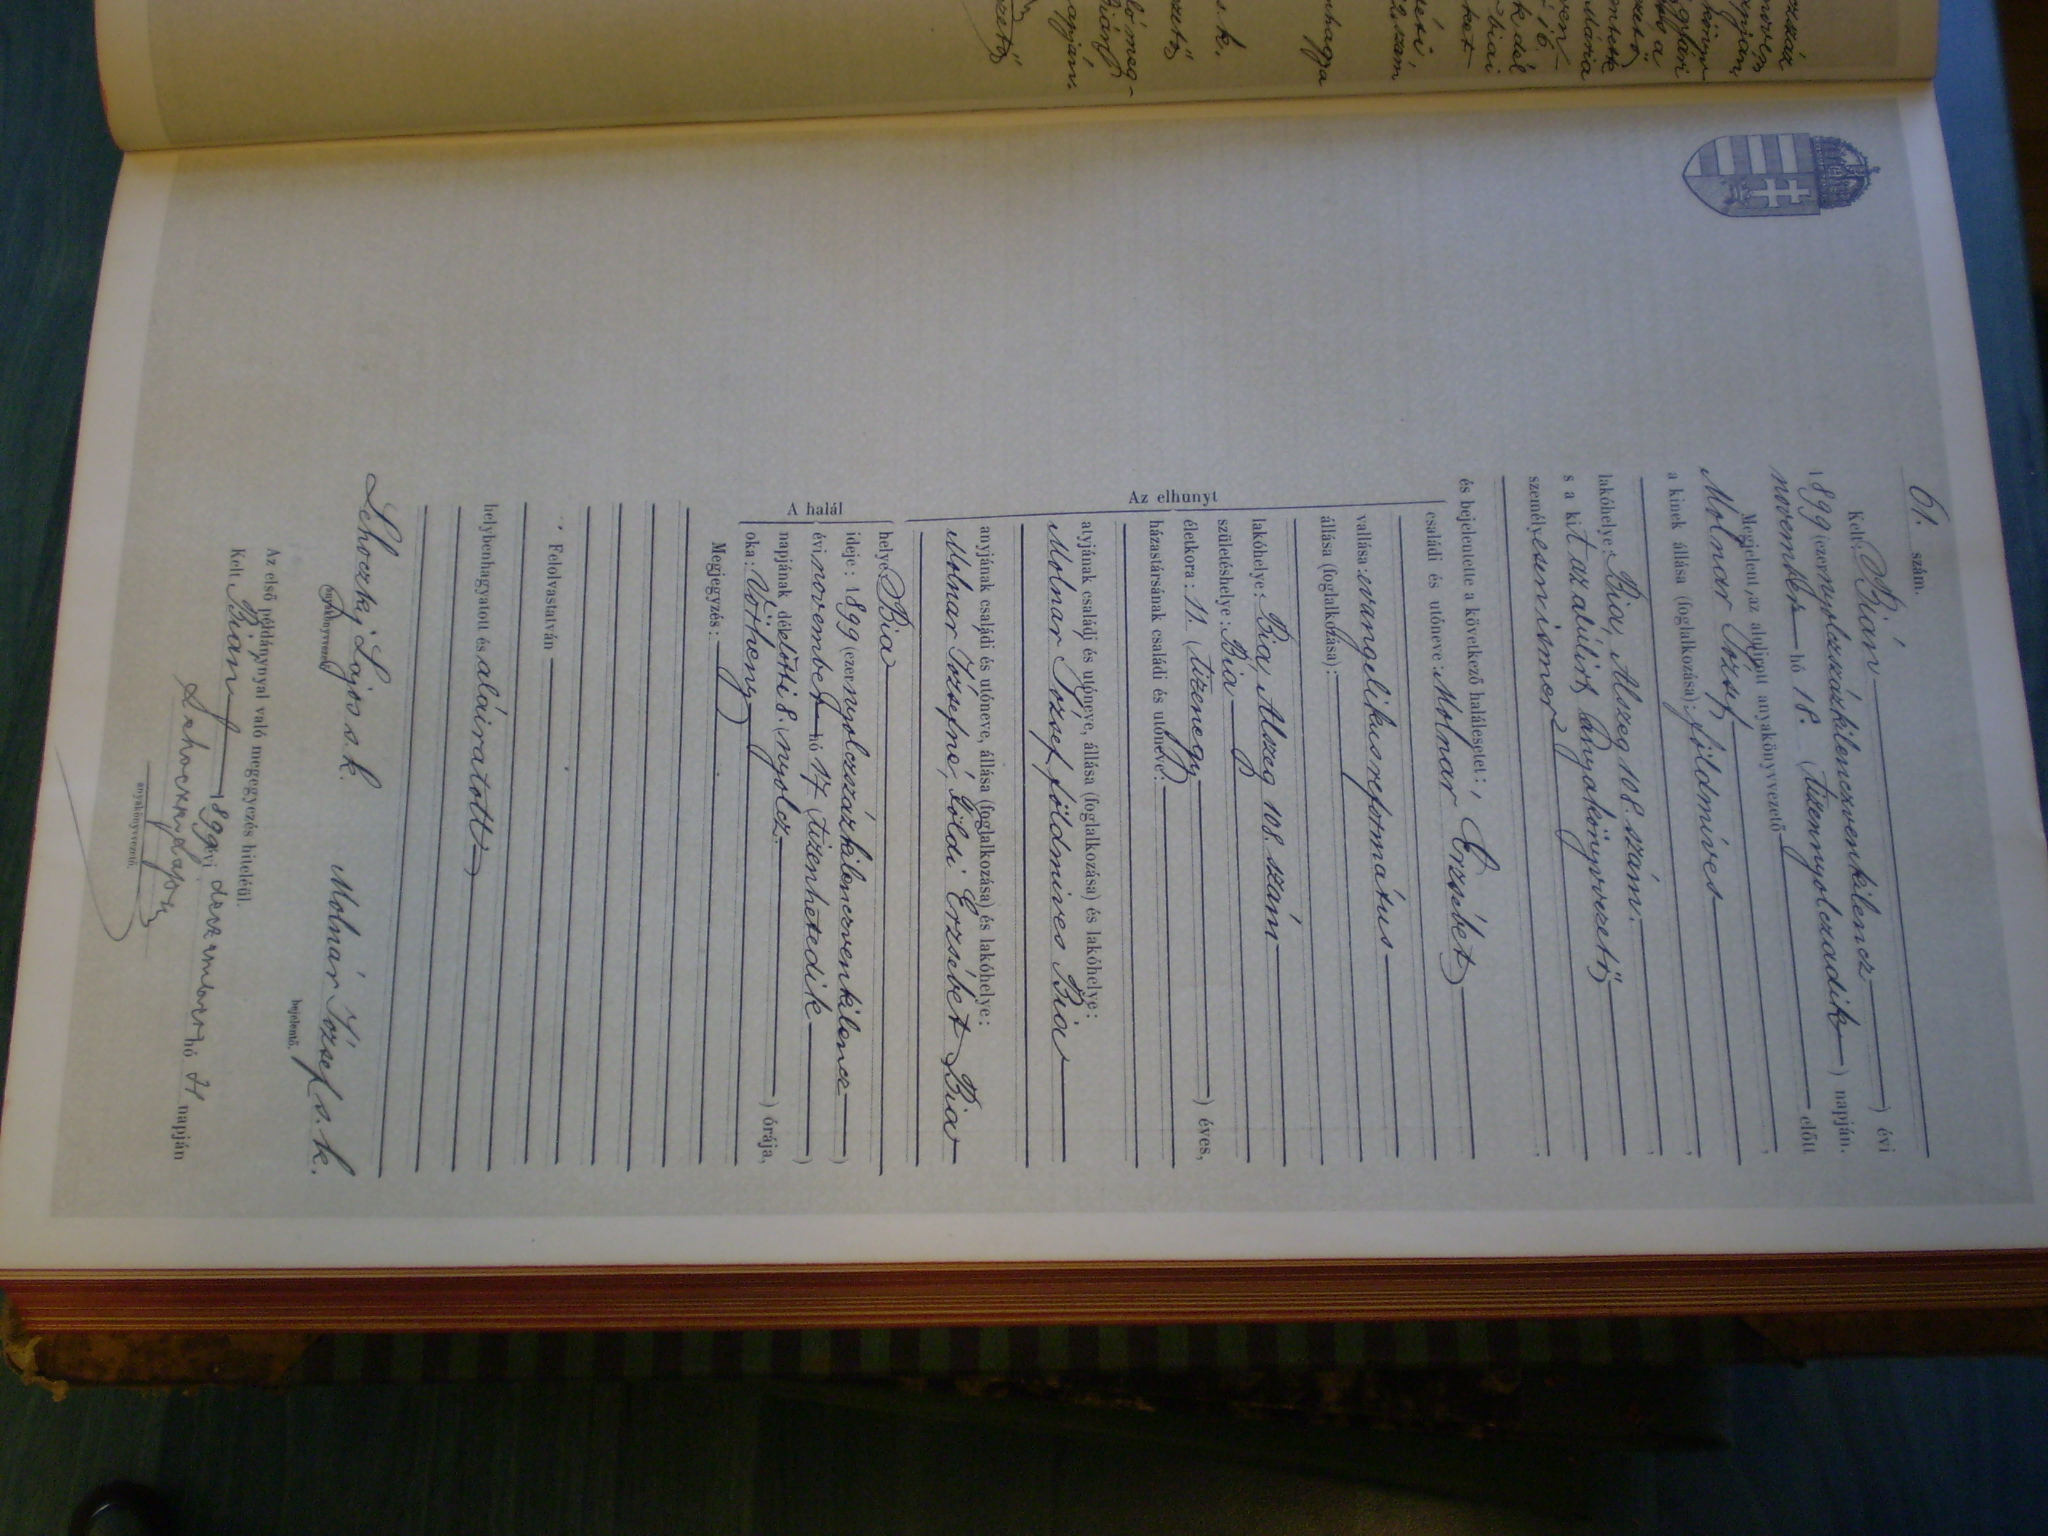 61. szám.
Kelt Bián évi
1899 (ezernyolczszázkilenczvenkilencz
november hó 18. (tizennyolczadik) napján.
Megjelent az alulírott anyakönyvvezető előtt
Molnár József
a kinek állása (foglalkozása): földmíves
lakóhelye: Bia, Alszeg 108. szám.
s a kit az alulírt anyakönyvvezető
személyesen ismer
és bejelentette a következő halálesetet:
családi és utóneve: Molnár Erzsébet
vallása: evangelikus református
állása (foglalkozása):
Az elhunyt
lakóhelye: Bia, Alszeg 108. szám
születéshelye: Bia
életkora: 11. (tizenegy) éves,
házastársának családi és utóneve:
atyjának családi és utóneve, állása (foglalkozása) és lakóhelye:
Molnár József földmíves Bia
anyjának családi és utóneve, állása (foglalkozása) és lakóhelye:
Molnár Józsefné, Földi Erzsébet, Bia
A halál
helye: Bia
ideje: 1899 (ezernyolczszázkilenczvenkilencz)
évi november hó 17. (tizenhetedik)
napjának délelőtti 8. (nyolcz) órája,
oka: Vörheny
Megjegyzés:
Felolvastatván
helybenhagyatott és aláiratott
Lehoczky Lajos s. k. Molnár József s. k.
anyakönyvvezető bejelentő.
Az első példánynyal való megegyezés hiteléül.
Kelt Bián 1899 évi december hó 31 napján
Lehoczky Lajos
anyakönyvvezető.